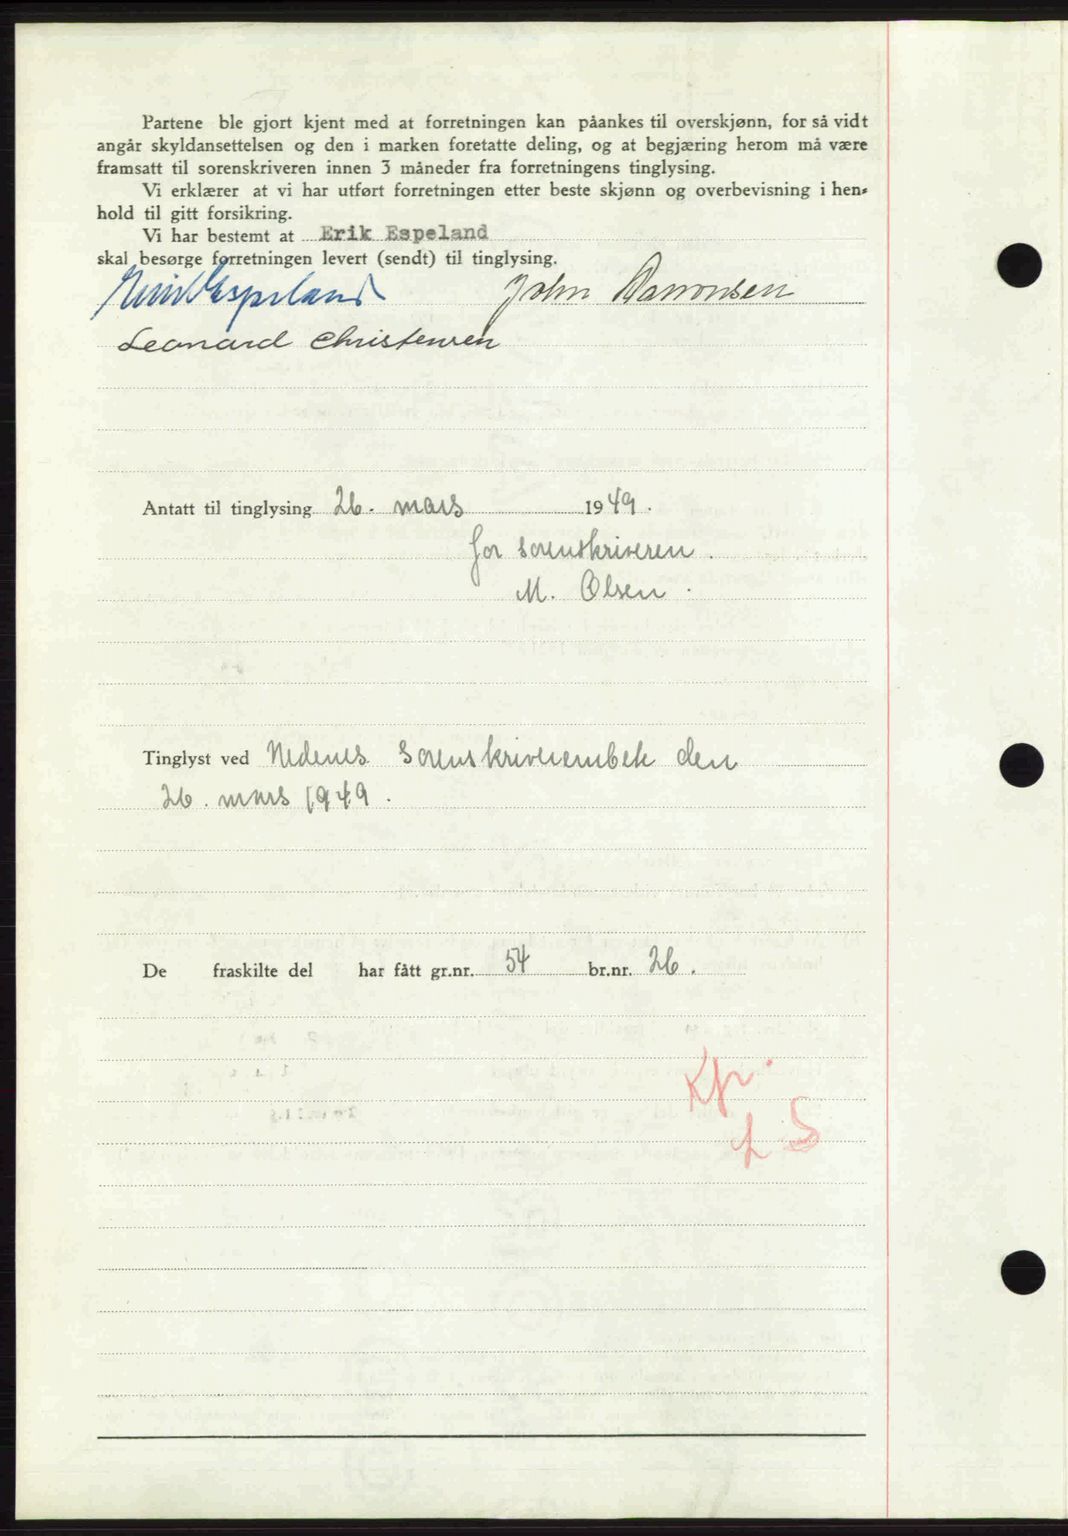 Partene ble gjort kjent med at forretningen kan påankes til overskjønn, for så vidt
angår skyldansettelsen og den i marken foretatte deling, og at begjæring herom må være
framsatt til sorenskriveren innen 3 måneder fra forretningens tinglysing.
Vi erklærer at vi har utført forretningen etter beste skjønn og overbevisning i hen-
hold til gitt forsikring.
Vi har bestemt at Erik Espeland
skal besørge forretningen levert (sendt) til tinglysing.
Espeland John
Leonard Christensen
Antatt til tinglysing 26. mars 1949.
for sorenskriveren.
M. Olsen.
Tinglyst ved Nedenes sorenskriverembete den
26. mars 1949.
De fraskilte del har fått gr.nr. 54 br.nr. 26.
Kp.
LS